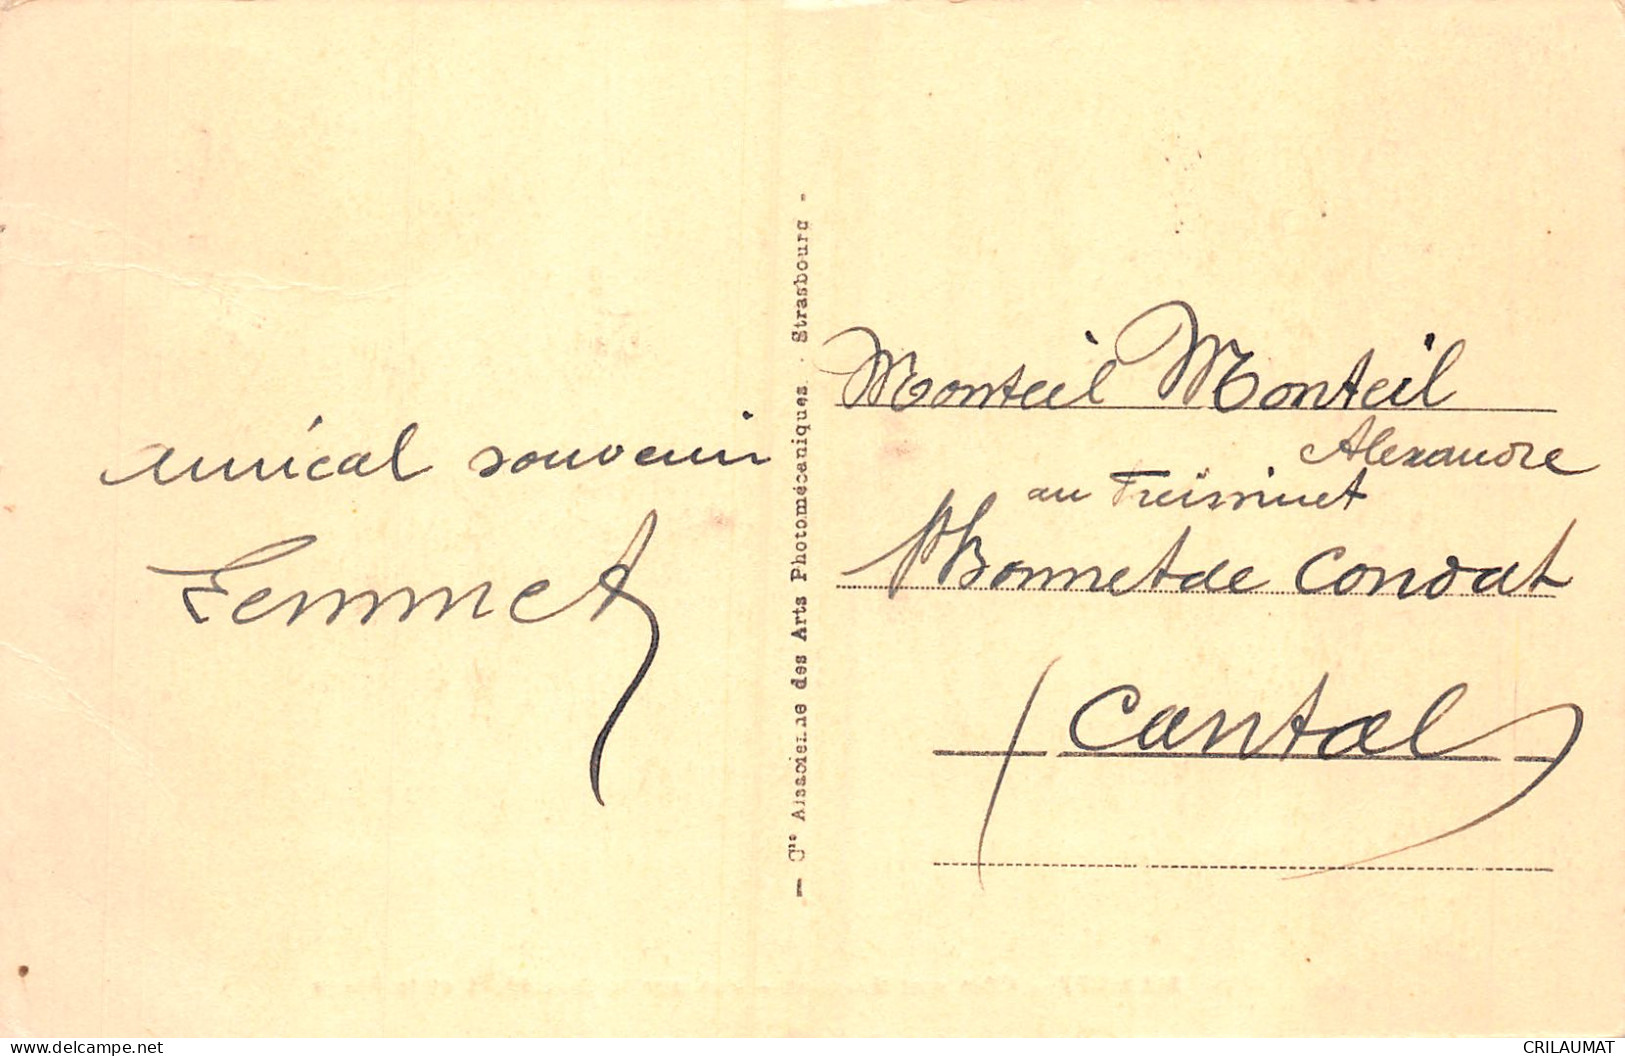 amical souvenir
Lemmet
— Cie Alsacienne des Arts Photomécaniques. - Strasbourg -
Monteil Monteil
Alexandre
au Freissinet
St Bonnet de Condat
(Cantal)
www.delcampe.net
CRILAUMAT